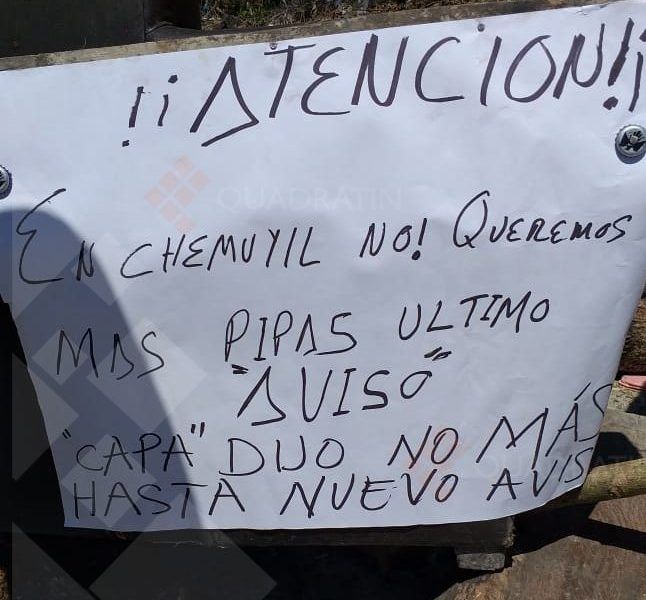 !¡ATENCION!¡
QUADRATIN
EN CHEMUYIL NO! QUEREMOS
MAS PIPAS ULTIMO
"AVISO"
"CAPA" DIJO NO MÁS
HASTA NUEVO AVIS